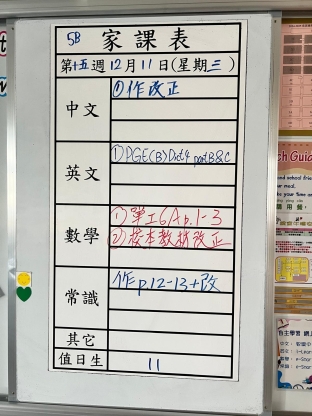 5B 家課表
第十五週12月11日(星期三)
中文 ①作改正
英文 ①PGE(B) Dict4 part B&C
數學 ①單工6A p.1-3
②校本教材改正
常識 作p.12-13+改
其它
值日生 11